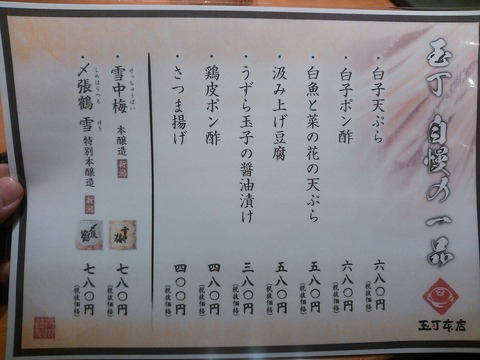 玉丁 自慢の一品
玉丁本店
・白子天ぷら 六八〇円(税抜価格)
・白子ポン酢 六八〇円(税抜価格)
・白魚と菜の花の天ぷら 五八〇円(税抜価格)
・汲み上げ豆腐 五八〇円(税抜価格)
・うずら玉子の醤油漬け 三八〇円(税抜価格)
・鶏皮ポン酢 四八〇円(税抜価格)
・さつま揚げ 四〇〇円(税抜価格)
せっちゅうばい
・雪中梅 本醸造 新潟 七八〇円(税抜価格)
しめはりつる ゆき
・〆張鶴 雪 特別本醸造 新潟 七八〇円(税抜価格)